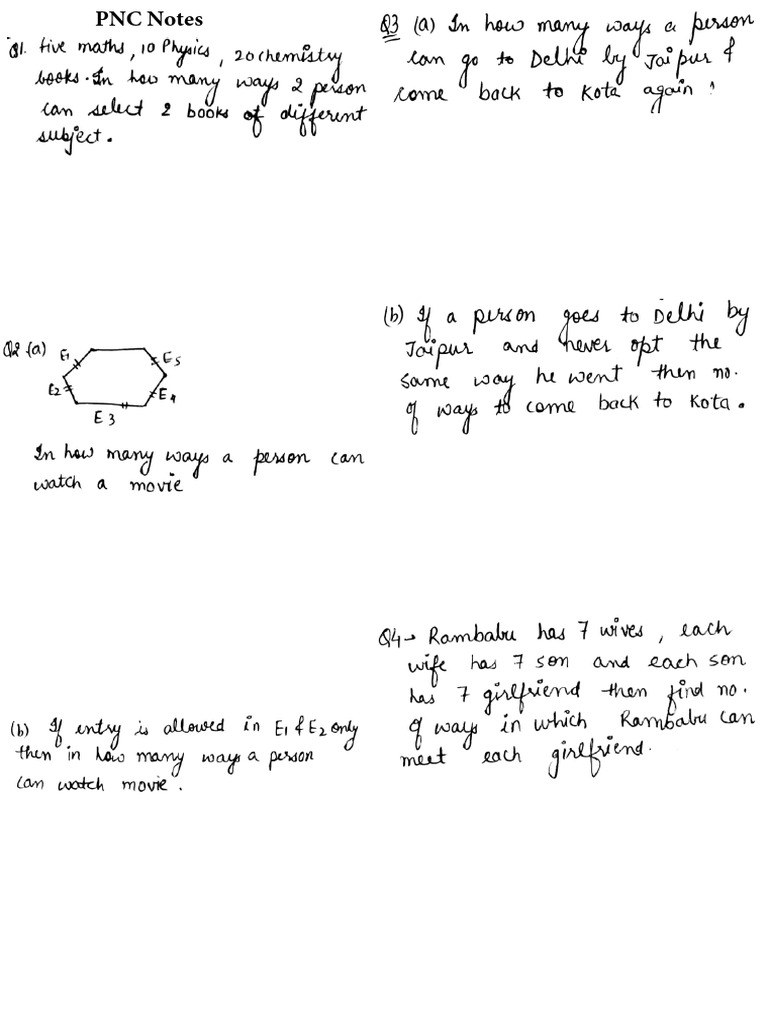 PNC Notes
Q1. five maths, 10 Physics, 20 chemistry
books. In how many ways 2 person
can select 2 books of different
subject.
Q2 (a)
E1
E5
E2
E4
E3
In how many ways a person can
watch a movie
(b) If entry is allowed in E1 & E2 only
then in how many ways a person
can watch movie.
Q3 (a) In how many ways a person
can go to Delhi by Jaipur &
come back to Kota again ?
(b) If a person goes to Delhi by
Jaipur and never opt the
same way he went then no.
of ways to come back to Kota.
Q4→ Rambabu has 7 wives, each
wife has 7 son and each son
has 7 girlfriend then find no.
of ways in which Rambabu can
meet each girlfriend.